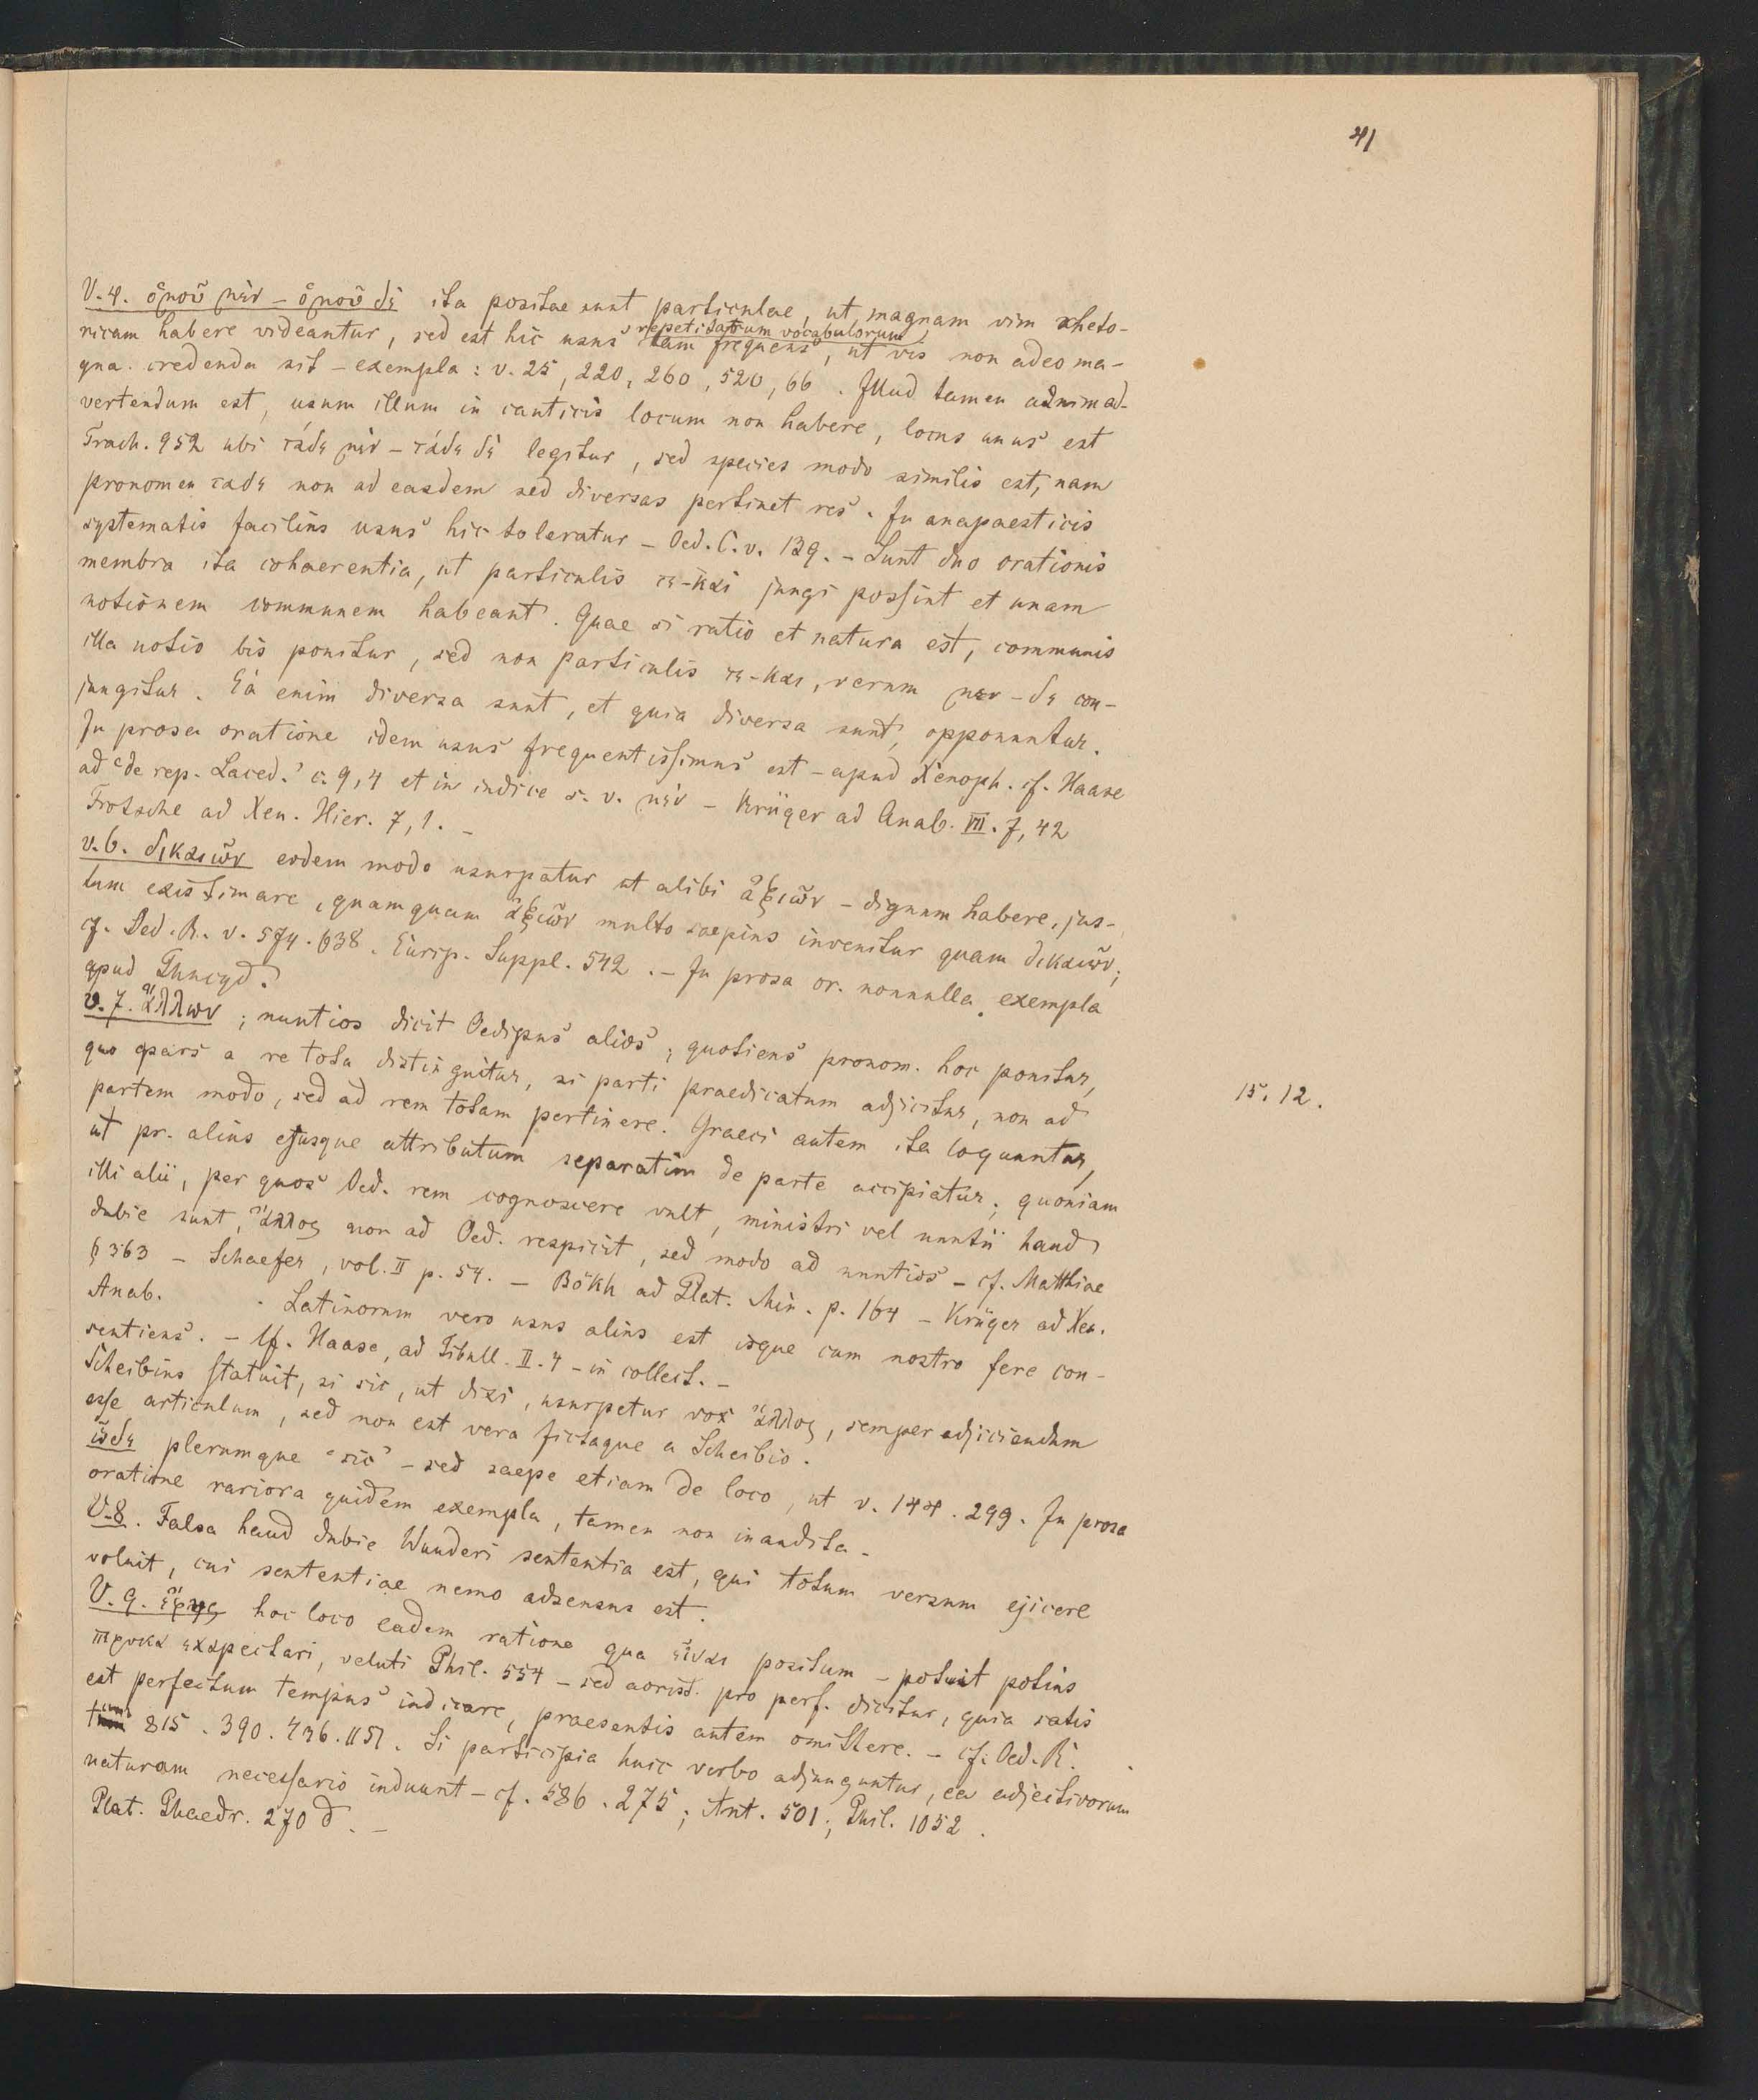 41
V. 4. ὁμοῦ μὲν – ὁμοῦ δὲ ita positae sunt particulae, ut magnam vim rheto-
ricam habere videantur, sed est hic usus repetitarum vocabulorum tam frequens, ut vis non adeo ma-
gna credenda sit – exempla: v. 25, 220, 260, 520, 66. Illud tamen adnimad-
vertendum est, usum illum in canticis locum non habere, locus unus est
Trach. 952 ubi τάδε μὲν – τάδε δὲ legitur, sed species modo similis est, nam
pronomen ταδε non ad easdem sed diversas pertinet res. In anapaesticis
systematis facilius usus hic toleratur – Oed. C. v. 139. – Sunt duo orationis
membra ita cohaerentia, ut particulis τε-καὶ jungi possint et unam
notionem communem habeant. Quae si ratio et natura est, communis
illa notio bis ponitur, sed non particulis τε-και, verum μεν – δε con-
jungitur. Ea enim diversa sunt, et quia diversa sunt, opponuntur.
In prosa oratione idem usus frequentissimus est – apud Xenoph. cf. Haase
ad 'de rep. Laced.' c. 9, 4 et in indice s. v. μὲν – Krüger ad Anab. VII. 7, 42
Frotsche ad Xen. Hier. 7, 1. –
v. 6. δικαιῶν eodem modo usurpatur ut alibi ἀξιῶν – dignum habere, jus-
tum existimare, quamquam ἀξιῶν multo saepius invenitur quam δικαιῶν;
cf. Oed. R. v. 574. 638. Eurip. Suppl. 542. – In prosa or. nonnulla exempla
apud Thucyd.
v. 7. ἄλλων; nuntios dicit Oedipus alios; quotiens pronom. hoc ponitur,
quo pars a re tota distinguitur, si parti praedicatum adjicitur, non ad
partem modo, sed ad rem totam pertinere. Graeci autem ita loquuntur,
15. 12.
ut pr. alius ejusque attributum separatim de parte accipiatur; quoniam
illi alii, per quos Oed. rem cognoscere vult, ministri vel nuntii haud
dubie sunt, ἄλλος non ad Oed. respicit, sed modo ad nuntios – cf. Matthiae
§ 363 – Schaefer, vol. II p. 54. – Bökh ad Plat. Min. p. 164 – Krüger ad Xen.
Anab. . Latinorum vero usus alius est isque cum nostro fere con-
sentiens. – Cf. Haase, ad Tibull. II. 4 – in collect. –
Scheibius statuit, si sic, ut dixi, usurpetur vox ἄλλος, semper adjiciendum
esse articulum, sed non est vera fictaque a Scheibio.
ὧδε plerumque 'sic' – sed saepe etiam de loco, ut v. 144. 299. In prosa
oratione rariora quidem exempla, tamen non inaudita –
V. 8. Falsa haud dubie Wunderi sententia est, qui totum versum ejicere
voluit, cui sententiae nemo adsensus est.
V. 9. ἔφυς hoc loco eadem ratione qua εἶναι positum – potuit potius
πεφυκα exspectari, veluti Phil. 554 – sed aorist. pro perf. dicitur, quia satis
est perfectum tempus indicare, praesentis autem omittere. – cf. Oed. R.
tum 815. 390. 436. 1151. Si participia huic verbo adjunguntur, ea adjectivorum
naturam necessario induunt – cf. 586. 275; Ant. 501; Phil. 1052.
Plat. Phaedr. 270 d. –